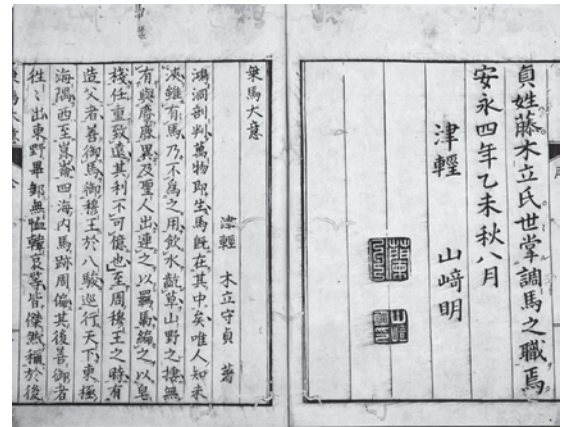 貞姓藤木立氏世掌調馬之職焉
安永四年乙未秋八月
津輕 山﨑明
乗馬大意
津輕 木立守貞 著
鴻洞剖判萬物即生馬既在其中矣唯人知未
浹雖有馬乃不為之用飲水齕草山野之棲無
有與麋麕異及聖人出連之以羈馽編之以皂
棧任重致遠其利不可憶也至周穆王之時有
造父者善御馬御穆王於八駿巡行天下東極
海隅西至崑崙四海内馬跡周偏其後善御者
徃〻出東野畢郵無恤韓哀等皆傑然稱於後